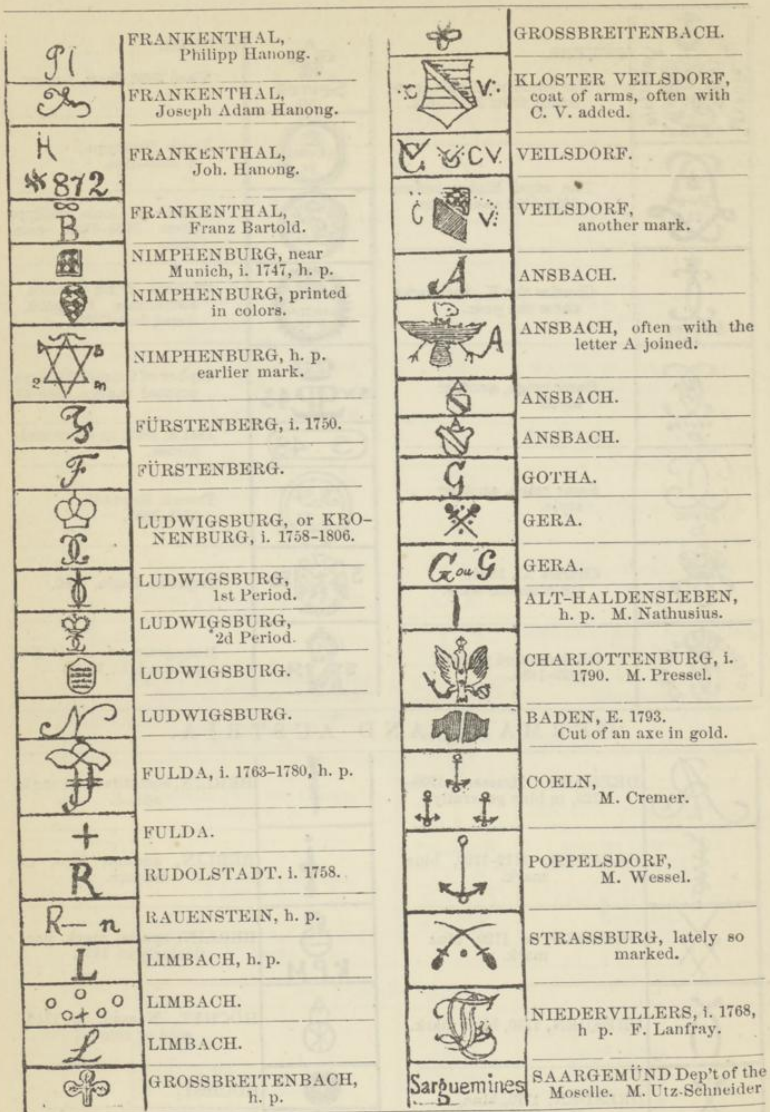 FRANKENTHAL,
Philipp Hanong.
FRANKENTHAL,
Joseph Adam Hanong.
H
872
FRANKENTHAL,
Joh. Hanong.
B
FRANKENTHAL,
Franz Bartold.
NIMPHENBURG, near
Munich, i. 1747, h. p.
NIMPHENBURG, printed
in colors.
NIMPHENBURG, h. p.
earlier mark.
FÜRSTENBERG, i. 1750.
F
FÜRSTENBERG.
LUDWIGSBURG, or KRO-
NENBURG, i. 1758-1806.
LUDWIGSBURG,
1st Period.
LUDWIGSBURG,
2d Period.
LUDWIGSBURG.
N
LUDWIGSBURG.
FULDA, i. 1763-1780, h. p.
+
FULDA.
R
RUDOLSTADT. i. 1758.
R— n
RAUENSTEIN, h. p.
L
LIMBACH, h. p.
LIMBACH.
L
LIMBACH.
GROSSBREITENBACH,
h. p.
GROSSBREITENBACH.
C V.
KLOSTER VEILSDORF,
coat of arms, often with
C. V. added.
CV.
VEILSDORF.
C V.
VEILSDORF,
another mark.
A
ANSBACH.
A
ANSBACH, often with the
letter A joined.
ANSBACH.
ANSBACH.
G
GOTHA.
GERA.
G ou G
GERA.
ALT-HALDENSLEBEN,
h. p. M. Nathusius.
CHARLOTTENBURG, i.
1790. M. Pressel.
BADEN, E. 1793.
Cut of an axe in gold.
COELN,
M. Cremer.
POPPELSDORF,
M. Wessel.
STRASSBURG, lately so
marked.
NIEDERVILLERS, i. 1768,
h p. F. Lanfray.
Sarguemines
SAARGEMÜND Dep't of the
Moselle. M. Utz-Schneider